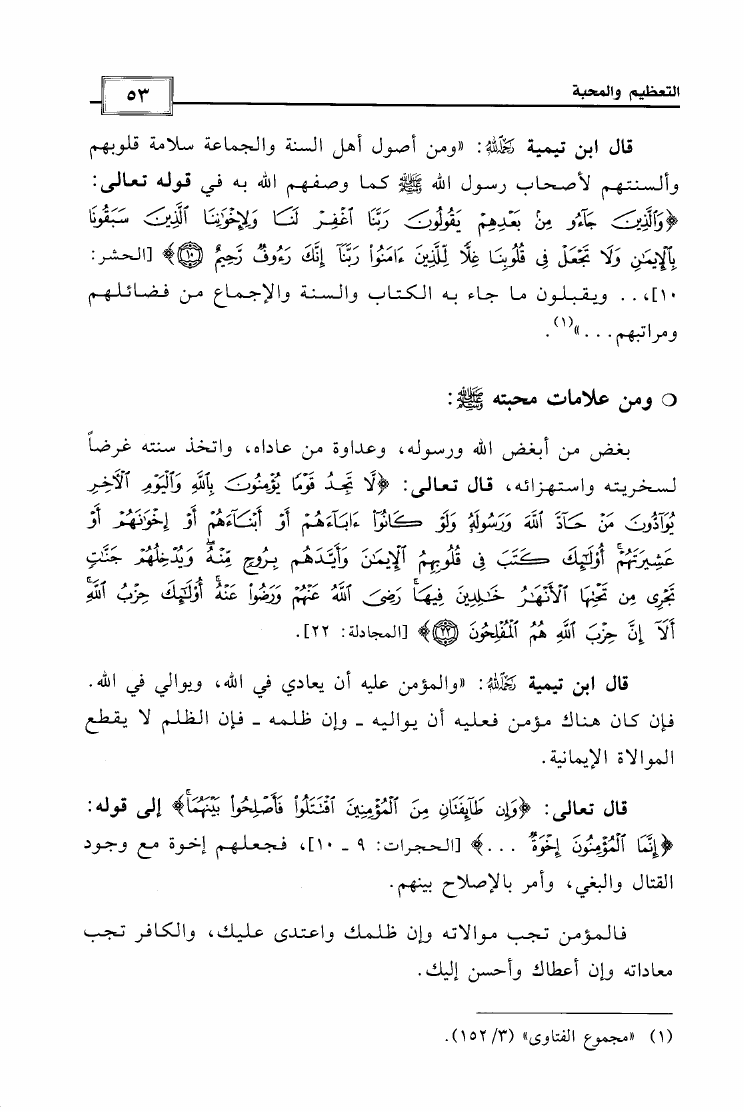 التعظيم والمحبة
٥٣
قال ابن تيمية رحمه الله: «ومن أصول أهل السنة والجماعة سلامة قلوبهم
وألسنتهم لأصحاب رسول الله ﷺ كما وصفهم الله به في قوله تعالى:
﴿وَٱلَّذِينَ جَآءُو مِنۢ بَعْدِهِمْ يَقُولُونَ رَبَّنَا ٱغْفِرْ لَنَا وَلِإِخْوَٰنِنَا ٱلَّذِينَ سَبَقُونَا
بِٱلْإِيمَٰنِ وَلَا تَجْعَلْ فِى قُلُوبِنَا غِلًّا لِّلَّذِينَ ءَامَنُوا۟ رَبَّنَآ إِنَّكَ رَءُوفٌ رَّحِيمٌ ۝١٠﴾ [الحشر:
١٠]،.. ويقبلون ما جاء به الكتاب والسنة والإجماع من فضائلهم
ومراتبهم...»(١).
❍ ومن علامات محبته ﷺ:
بغض من أبغض الله ورسوله، وعداوة من عاداه، واتخذ سنته غرضاً
لسخريته واستهزائه، قال تعالى: ﴿لَّا تَجِدُ قَوْمًا يُؤْمِنُونَ بِٱللَّهِ وَٱلْيَوْمِ ٱلْأَخِرِ
يُوَآدُّونَ مَنْ حَآدَّ ٱللَّهَ وَرَسُولَهُۥ وَلَوْ كَانُوٓا۟ ءَابَآءَهُمْ أَوْ أَبْنَآءَهُمْ أَوْ إِخْوَٰنَهُمْ أَوْ
عَشِيرَتَهُمْ ۚ أُو۟لَٰٓئِكَ كَتَبَ فِى قُلُوبِهِمُ ٱلْإِيمَٰنَ وَأَيَّدَهُم بِرُوحٍ مِّنْهُ ۖ وَيُدْخِلُهُمْ جَنَّٰتٍ
تَجْرِى مِن تَحْتِهَا ٱلْأَنْهَٰرُ خَٰلِدِينَ فِيهَا ۚ رَضِىَ ٱللَّهُ عَنْهُمْ وَرَضُوا۟ عَنْهُ ۚ أُو۟لَٰٓئِكَ حِزْبُ ٱللَّهِ ۚ
أَلَآ إِنَّ حِزْبَ ٱللَّهِ هُمُ ٱلْمُفْلِحُونَ ۝٢٢﴾ [المجادلة: ٢٢].
قال ابن تيمية رحمه الله: «والمؤمن عليه أن يعادي في الله، ويوالي في الله.
فإن كان هناك مؤمن فعليه أن يواليه ـ وإن ظلمه ـ فإن الظلم لا يقطع
الموالاة الإيمانية.
قال تعالى: ﴿وَإِن طَآئِفَتَانِ مِنَ ٱلْمُؤْمِنِينَ ٱقْتَتَلُوا۟ فَأَصْلِحُوا۟ بَيْنَهُمَا ۖ﴾ إلى قوله:
﴿إِنَّمَا ٱلْمُؤْمِنُونَ إِخْوَةٌ ...﴾ [الحجرات: ٩ ـ ١٠]، فجعلهم إخوة مع وجود
القتال والبغي، وأمر بالإصلاح بينهم.
فالمؤمن تجب موالاته وإن ظلمك واعتدى عليك، والكافر تجب
معاداته وإن أعطاك وأحسن إليك.
(١) «مجموع الفتاوى» (٣/ ١٥٢).